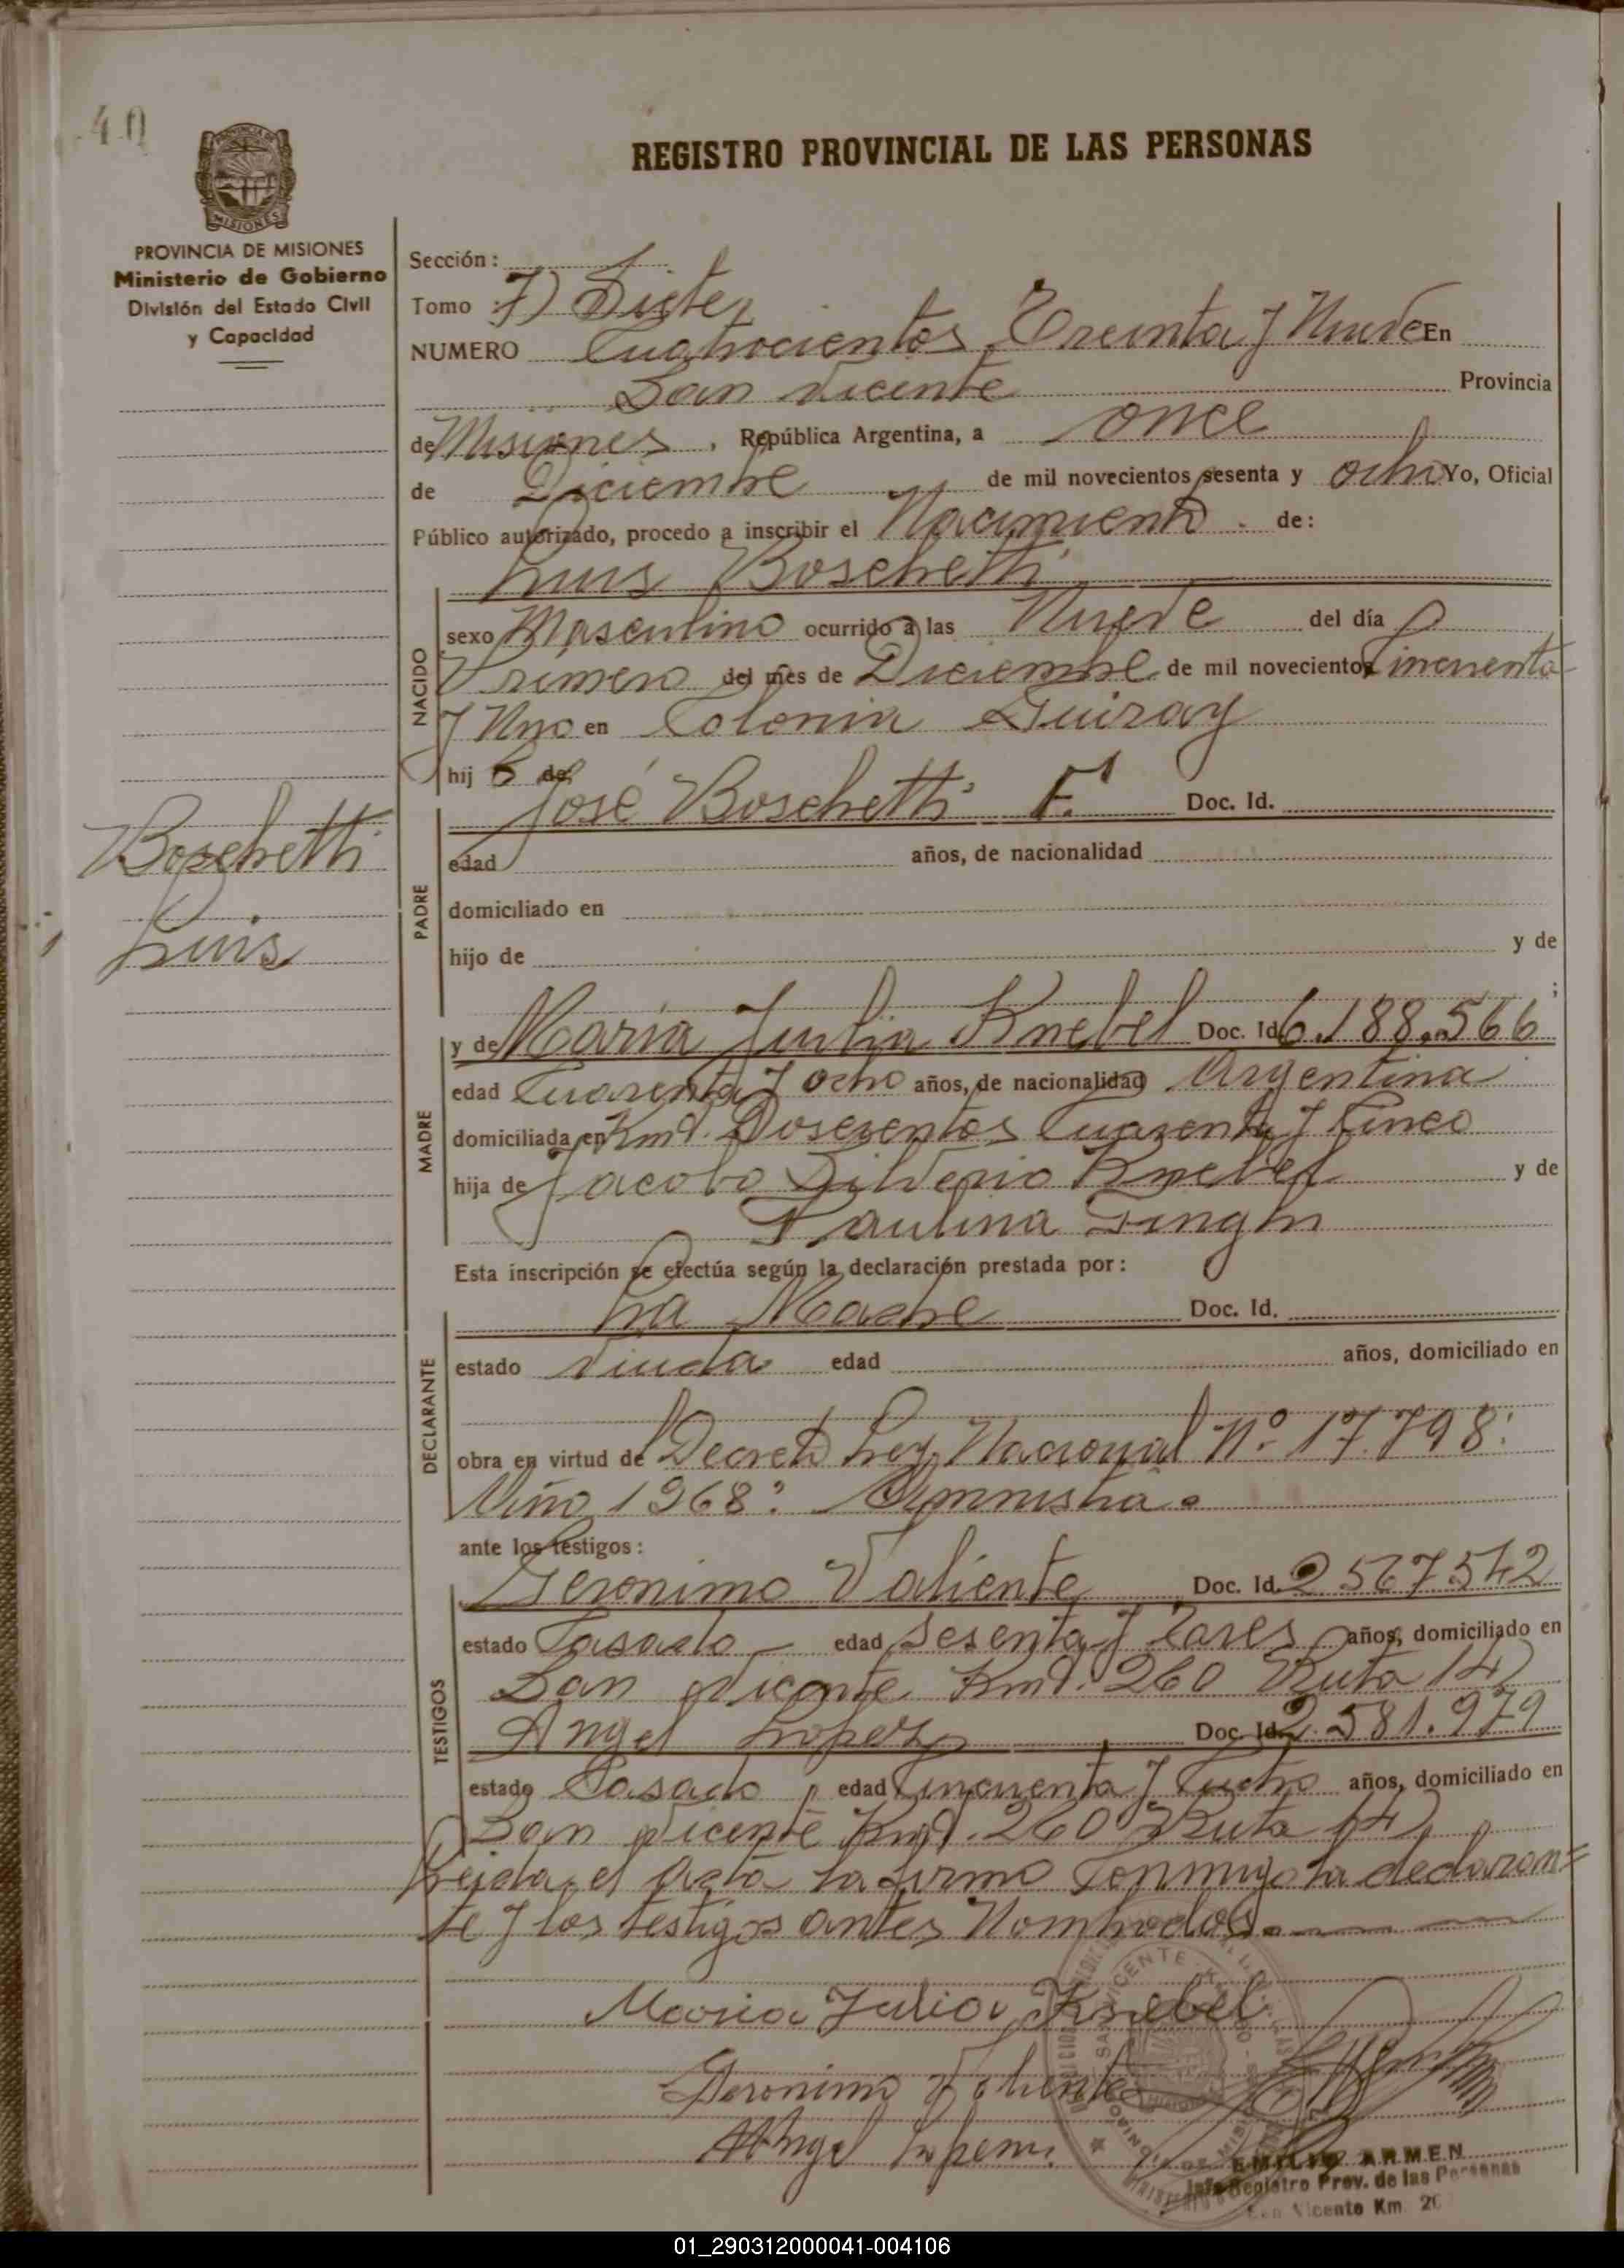 40
REGISTRO PROVINCIAL DE LAS PERSONAS
MISIONES
PROVINCIA DE MISIONES
Ministerio de Gobierno
División del Estado Civil
y Capacidad
Sección:
Tomo 7) Siete
NUMERO Cuatrocientos Treinta y Nueve En
San Vicente Provincia
de Misiones, República Argentina, a once
de Diciembre de mil novecientos sesenta y ocho Yo, Oficial
Público autorizado, procedo a inscribir el Nacimiento de:
Luis Boschetti
NACIDO
sexo Masculino ocurrido a las Nueve del día
Primero del mes de Diciembre de mil novecientos Cincuenta
y Uno en Colonia Guiray
hij o de
Boschetti
Luis
PADRE
José Boschetti F. Doc. Id.
edad años, de nacionalidad
domiciliado en
hijo de y de
;
MADRE
y de Maria Julia Knebel Doc. Id 6.188.566
edad Cuarenta y ocho años, de nacionalidad Argentina
domiciliada en Kmt. Doscientos Cuarenta y Cinco
hija de Jacobo Silverio Knebel y de
Paulina
Esta inscripción se efectúa según la declaración prestada por:
DECLARANTE
La Madre Doc. Id.
estado viuda edad años, domiciliado en
obra en virtud de Decreto Ley Nacional Nº 17.798:
Año 1968: Amnistia.
ante los testigos:
TESTIGOS
Geronimo Valiente Doc. Id. 2567542
estado Casado edad Sesenta y años, domiciliado en
San Vicente Kmt. 260 Ruta 14
Angel Lopez Doc. Id. 2.581.979
estado Casado edad Cincuenta y años, domiciliado en
San Vicente Kmt. 260 Ruta 14
Leida el Acta la firma Conmigo la declaran=
te y los testigos antes Nombrados.
Maria Julia Knebel
Geronimo Valiente
Angel
EMILIO ARMEN
Jefe Registro Prov. de las Personas
San Vicente Km. 26
01_290312000041-004106